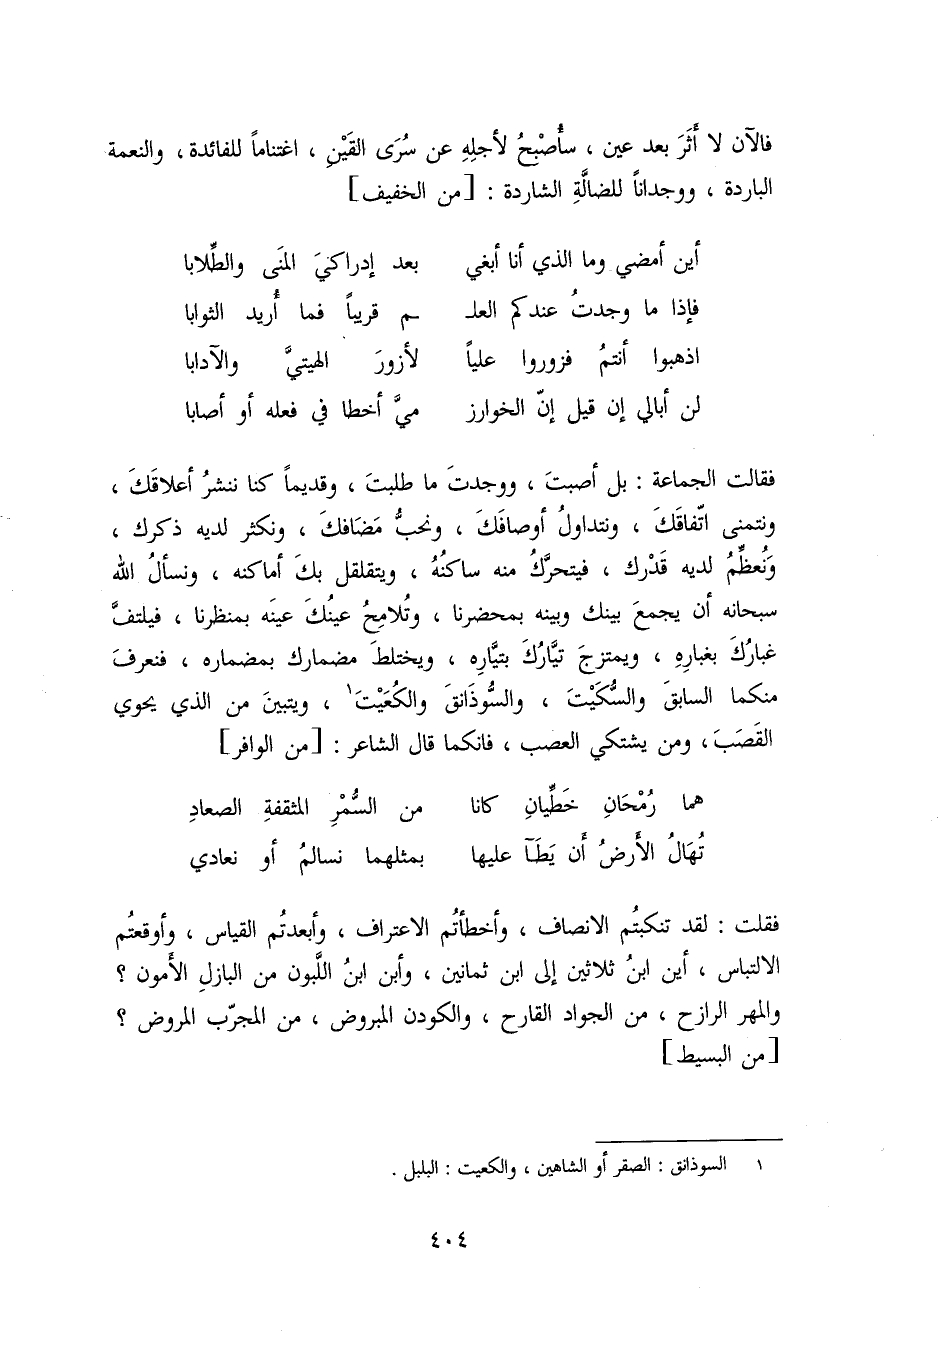 فالآن لا أَثَرَ بعد عين ، سأُصْبِحُ لأجلِهِ عن سُرَى القَيْنِ ، اغتناماً للفائدة ، والنعمة
الباردة ، ووجداناً للضالَّةِ الشاردة : [من الخفيف]
أين أمضي وما الذي أنا أبغي بعد إدراكيَ المنَى والطِّلابا
فإذا ما وجدتُ عندكم العلـ ـم قريباً فما أُريد الثوابا
اذهبوا أنتمُ فزوروا علياً لأزورَ الهيتيَّ والآدابا
لن أبالي إن قيل إنّ الخوارز ميَّ أخطا في فعله أو أصابا
فقالت الجماعة : بل أصبتَ ، ووجدتَ ما طلبتَ ، وقديماً كنا ننشرُ أعلاقَكَ ،
ونتمنى اتّفاقَكَ ، ونتداولُ أوصافَكَ ، ونحبُّ مَضَافكَ ، ونكثر لديه ذكرك ،
وَنُعظِّمُ لديه قَدْرك ، فيتحرَّكُ منه ساكنُهُ ، ويتقلقل بكَ أماكنه ، ونسألُ الله
سبحانه أن يجمعَ بينك وبينه بمحضرنا ، وتُلامِحُ عينُكَ عينَه بمنظرنا ، فيلتفَّ
غبارُكَ بغبارِهِ ، ويمتزجَ تيَّارُكَ بتيَّارِه ، ويختلطَ مضمارك بمضماره ، فنعرفَ
منكما السابقَ والسُّكَيْتَ ، والسُّوذَانقَ والكُعَيْتَ١ ، ويتبينَ من الذي يحوي
القَصَبَ ، ومن يشتكي العصب ، فانكما قال الشاعر : [من الوافر]
هما رُمْحَانِ خَطِّيانِ كانا من السُّمْرِ المثقفةِ الصعادِ
تُهَالُ الأَرضُ أَن يَطَآ عليها بمثلهما نسالمُ أو نعادي
فقلت : لقد تنكبتُم الانصاف ، وأخطأتُم الاعتراف ، وأبعدتُم القياس ، وأوقعتُم
الالتباس ، أين ابنُ ثلاثين إلى ابن ثمانين ، وأين ابنُ اللَّبون من البازلِ الأَمون ؟
والمهر الرازح ، من الجواد القارح ، والكودن المبروض ، من المجرّب المروض ؟
[من البسيط]
١ السوذانق : الصقر أو الشاهين ، والكعيت : البلبل .
٤٠٤